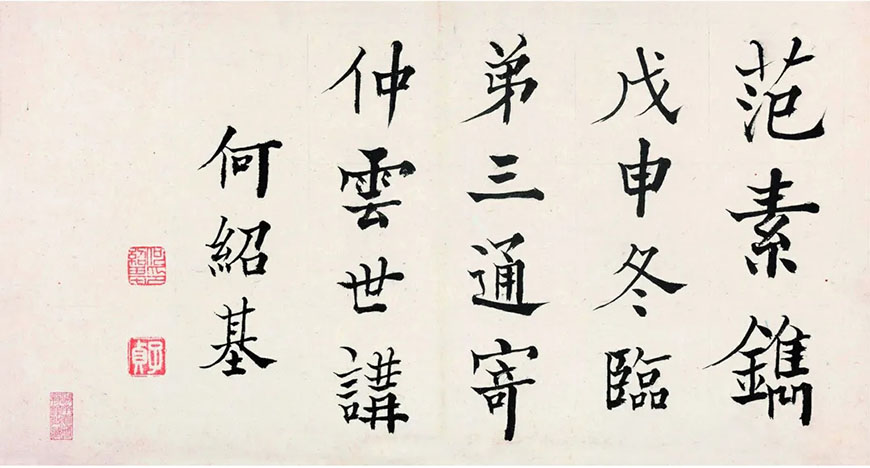 范素鐫
戊申冬臨
弟三通寄
仲雲世講
何紹基
子貞